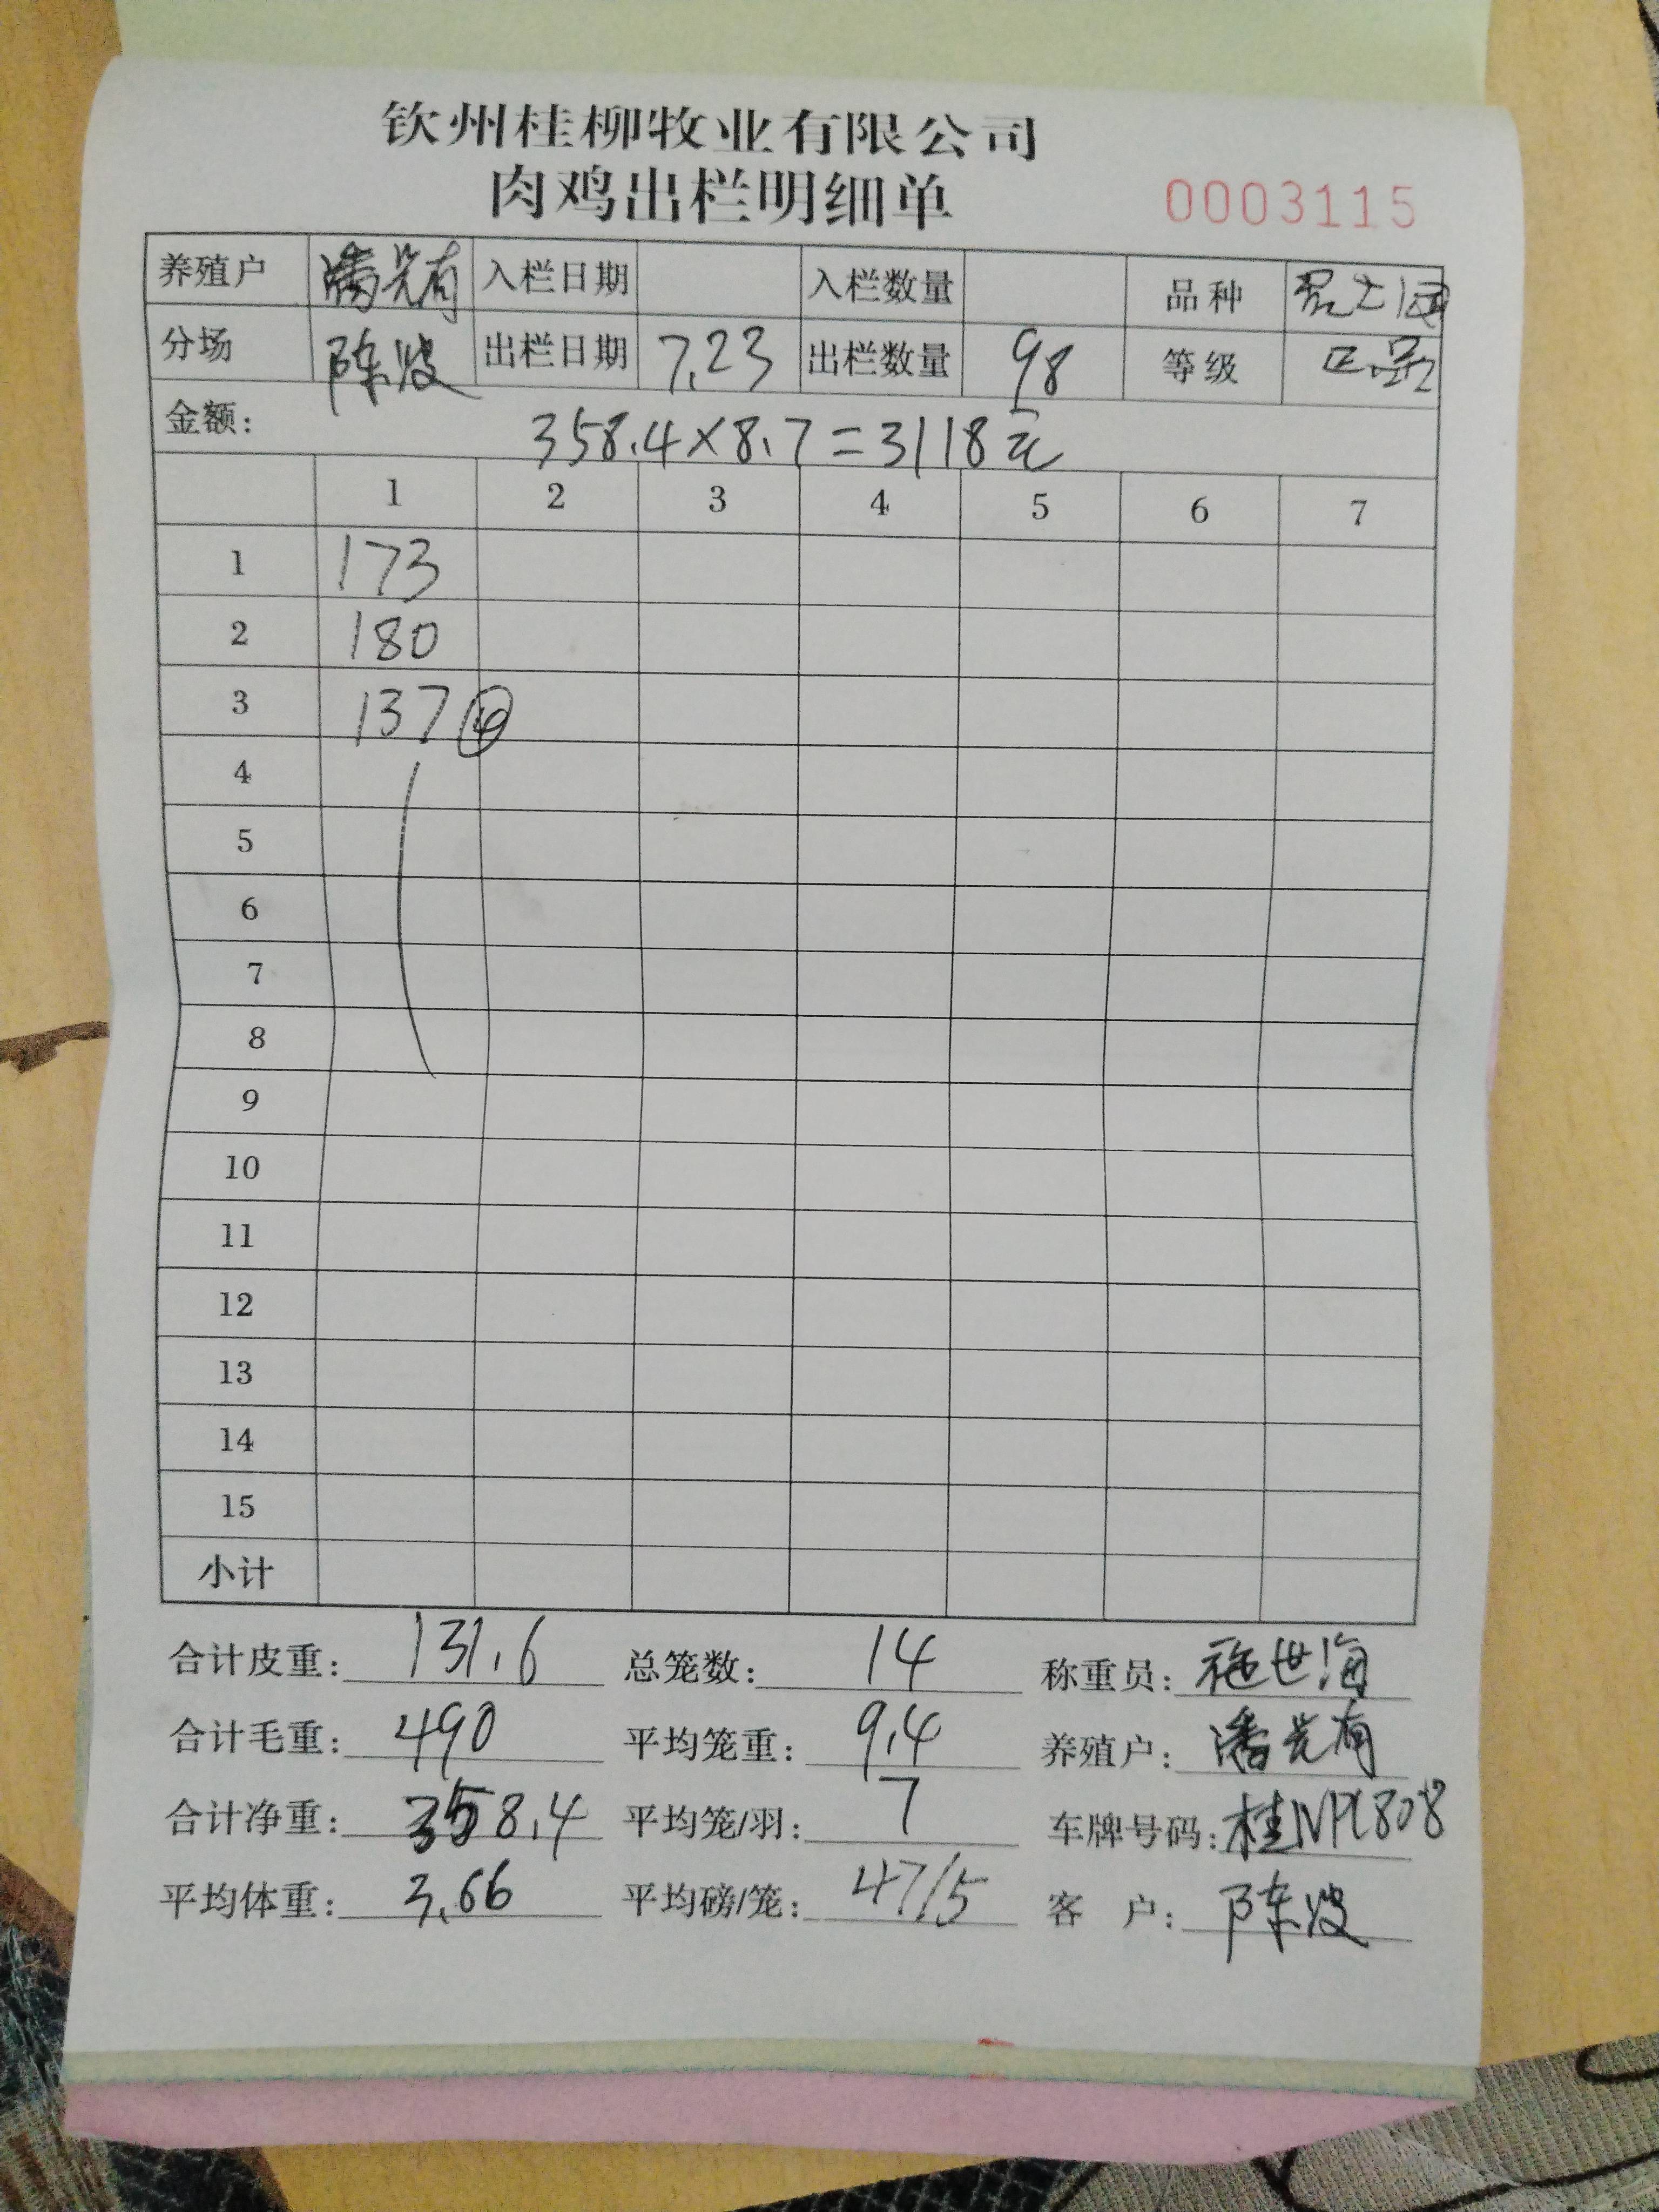 钦州桂柳牧业有限公司
肉鸡出栏明细单 0003115
养殖户 潘光有 入栏日期 入栏数量 品种
分场 陈波 出栏日期 7.23 出栏数量 98 等级
金额: 358.4×8.7=3118元
1 2 3 4 5 6 7
1 173
2 180
3 137 ④
4
5
6
7
8
9
10
11
12
13
14
15
小计
合计皮重: 131.6 总笼数: 14 称重员: 施世海
合计毛重: 490 平均笼重: 9.4 养殖户: 潘光有
合计净重: 358.4 平均笼/羽: 7 车牌号码:
平均体重: 3.66 平均磅/笼: 47/5 客 户: 陈波